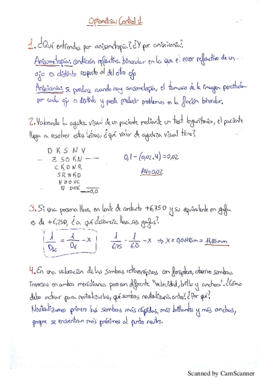 Optometría Control 1
1. ¿Qué entiendes por anisometropía? ¿Y por aniseiconia?
Anisometropía: condición refractiva binocular en la que el error refractivo de un
ojo es distinto respecto al del otro ojo
Aniseiconia: se produce cuando hay anisometropía, el tamaño de la imagen percibida
por cada ojo es distinto y puede producir problemas en la función binocular.
2. Valorando la agudeza visual de un paciente mediante un test logarítmico, el paciente
llega a reconocer estas letras. ¿Qué valor de agudeza visual tiene?
D K S N V
Z S O K N
C K D N R
S R Z K D
0,1-(0,02·4)=0,02
AV=0,02
0,0
3. Si una persona lleva, en lente de contacto +6,75D y su equivalente en gafa
es de +6,25D, ¿a qué distancia lleva sus gafas?
4. En una valoración de las sombras retinoscópicas con foroptero, observo sombras
inversas en ambos meridianos pero con diferente "velocidad, brillo y anchura". ¿Cómo
debo actuar para neutralizarlas, qué sombras neutralizarías antes? ¿Por qué?
Neutralizamos primero las sombras más rápidas, más brillantes y más anchas,
porque se encuentran más próximas al punto neutro.
Scanned by CamScanner